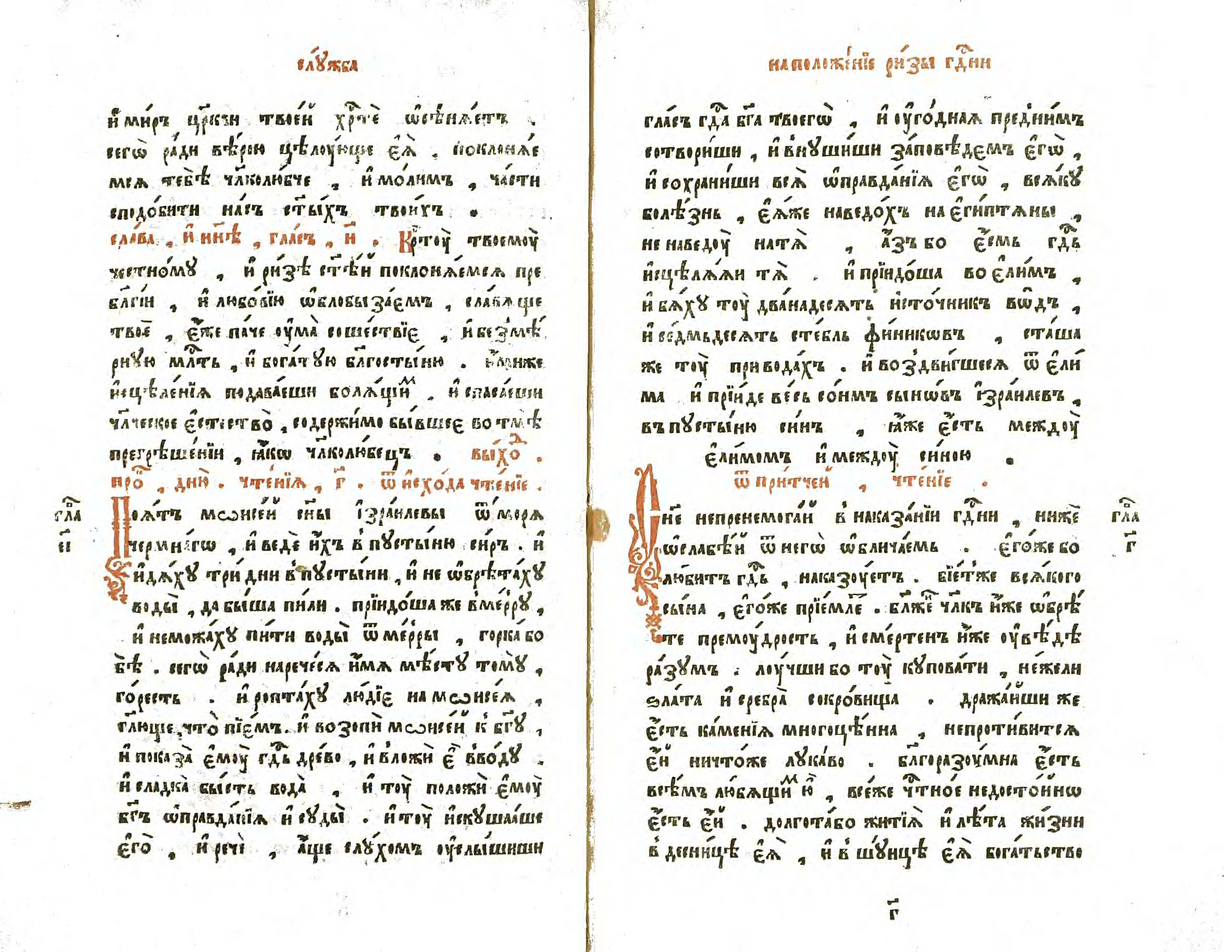 слꙋ́жба
и҆́миръ цр҃кви твое́й хрⷭ҇тѐ ѡ҆сѣнѧ́етъ .
сегѡ̀ ра́ди вѣ́рою цѣлꙋ́юще є҆ѧ̀ , поклонѧ́е
мсѧ тебѣ̀ чл҃колю́бче , и҆ мо́лимъ , ча́сти
сподо́бити на́съ ст҃ы́хъ твои́хъ .
сла́ва , и҆ ны́нѣ , гла́съ , и҃ . Крⷭ҇тꙋ̀ твоемꙋ̀
честно́мꙋ , и҆ ри́зѣ ст҃ѣ́й поклонѧ́емсѧ пре
бл҃гі́й , и҆ любо́вїю ѡ҆блобыза́емъ , сла́вѧще
твоѐ , є҆́же па́че ᲂу҆ма̀ соше́ствїе , и҆ безмѣ́
рнꙋю млⷭ҇ть , и҆ бога́тꙋю бл҃госты́ню . и҆́миже
и҆сцѣле́нїѧ подава́еши болѧ́щиⷨ , и҆ спаса́еши
чл҃ческое є҆стество̀ , содержи́мо бы́вшее во тмѣ̀
прегрѣше́нїи , ꙗ҆́кѡ чл҃колю́бецъ . вы́хоⷣ .
про́ⷦ , дню̀ . чте́нїѧ , г҃ . ѿ и҆схо́да чте́нїе .
гла̀ Поѧ́тъ мѡисе́й сн҃ы і҆зра́илевы ѿ мо́рѧ
є҃і чермна́гѡ , и҆ ведѐ и҆̀хъ в пꙋсты́ню си́ръ . и҆
и҆дѧ́хꙋ три́ дни в пꙋсты́ни , и҆ не ѡ҆брѣта́хꙋ
воды̀ , да бы́ша пи́ли . прїидо́ша же в ме́ррꙋ ,
и҆ немо́жахꙋ пи́ти воды̀ ѿ ме́рры , горка́ бо
бѣ̀ . сегѡ̀ ра́ди нарече́сѧ и҆́мѧ мѣ́стꙋ то́мꙋ ,
го́ресть . и҆ ропта́хꙋ лю́дїе на мѡисе́ѧ ,
гл҃юще , что̀ пїе́мъ . и҆ возопѝ мѡисе́й к бг҃ꙋ ,
и҆ показа̀ є҆мꙋ̀ гдⷭ҇ь дре́во , и҆ вложѝ є҆̀ в во́дꙋ .
и҆ сладка̀ бы́сть вода̀ , и҆ тꙋ̀ положѝ є҆мꙋ̀
бг҃ъ ѡ҆правда́нїѧ и҆ сꙋды̀ . и҆ тꙋ̀ и҆скꙋша́аше
є҆го̀ , и҆ речѐ , а҆́ще слꙋ́хомъ ᲂу҆слы́шиши
на положе́нїе ри́зы гдⷭ҇ни
гла́съ гдⷭ҇а бг҃а твоегѡ̀ , и҆ ᲂу҆го́днаѧ пред ни́мъ
сотвори́ши , и҆ внꙋши́ши за́повѣдемъ є҆гѡ̀ ,
и҆ сохрани́ши всѧ̀ ѡ҆правда́нїѧ є҆гѡ̀ , всѧ́кꙋ
болѣ́знь , є҆ѧ́же наведо́хъ на є҆гиптѧ́ны ,
не наведꙋ̀ на тѧ̀ , а҆́зъ бо є҆́смь гдⷭ҇ь
и҆сцѣлѧ́ѧи тѧ̀ . и҆ прїидо́ша во є҆ли́мъ ,
и҆ бѧ́хꙋ тꙋ̀ двана́десѧть и҆сто́чникъ во́дъ ,
и҆ се́дмьдесѧть сте́бль фи́никовъ , ста́ша
же тꙋ̀ при вода́хъ . и҆ воздви́гшесѧ ѿ є҆ли́
ма и҆ прїи́де ве́сь со́нмъ сынѡ́въ і҆зра́илевъ ,
въ пꙋсты́ню си́нъ , ꙗ҆́же є҆́сть междꙋ̀
є҆ли́момъ и҆ междꙋ̀ си́ною .
ѿ при́тчей , чте́нїе .
Сы́не не пренемога́й в наказа́нїи гдⷭ҇ни , нижѐ гла̀
ѡ҆слабѣ́й ѿ негѡ̀ ѡ҆блича́емь . є҆го́же бо г҃
лю́битъ гдⷭ҇ь , наказꙋ́етъ . бїе́тже всѧ́кого
сы́на , є҆го́же прїе́млеⷮ . бл҃же́ⷩ чл҃къ и҆́же ѡ҆брѣ́
те премꙋ́дрость , и҆ сме́ртенъ и҆́же ᲂу҆вѣ́дѣ
ра́зꙋмъ . лꙋ́чши бо тꙋ̀ кꙋпова́ти , не́жели
зла́та и҆ сребра̀ сокро́вища . дража́йши же
є҆́сть ка́менїѧ многоцѣ́нна , непроти́витсѧ
є҆́й ничто́же лꙋка́во . бл҃горазꙋ́мна є҆́сть
всѣ́мъ лю́бѧщиⷨ ю҆̀ , все́же чⷭ҇тно́е недосто́йно
є҆́сть є҆́й . долгота́ бо житїѧ̀ и҆ лѣ́та жи́зни
в десни́цѣ є҆ѧ̀ , и҆ в шꙋ́ицѣ є҆ѧ̀ бога́тьство
г҃